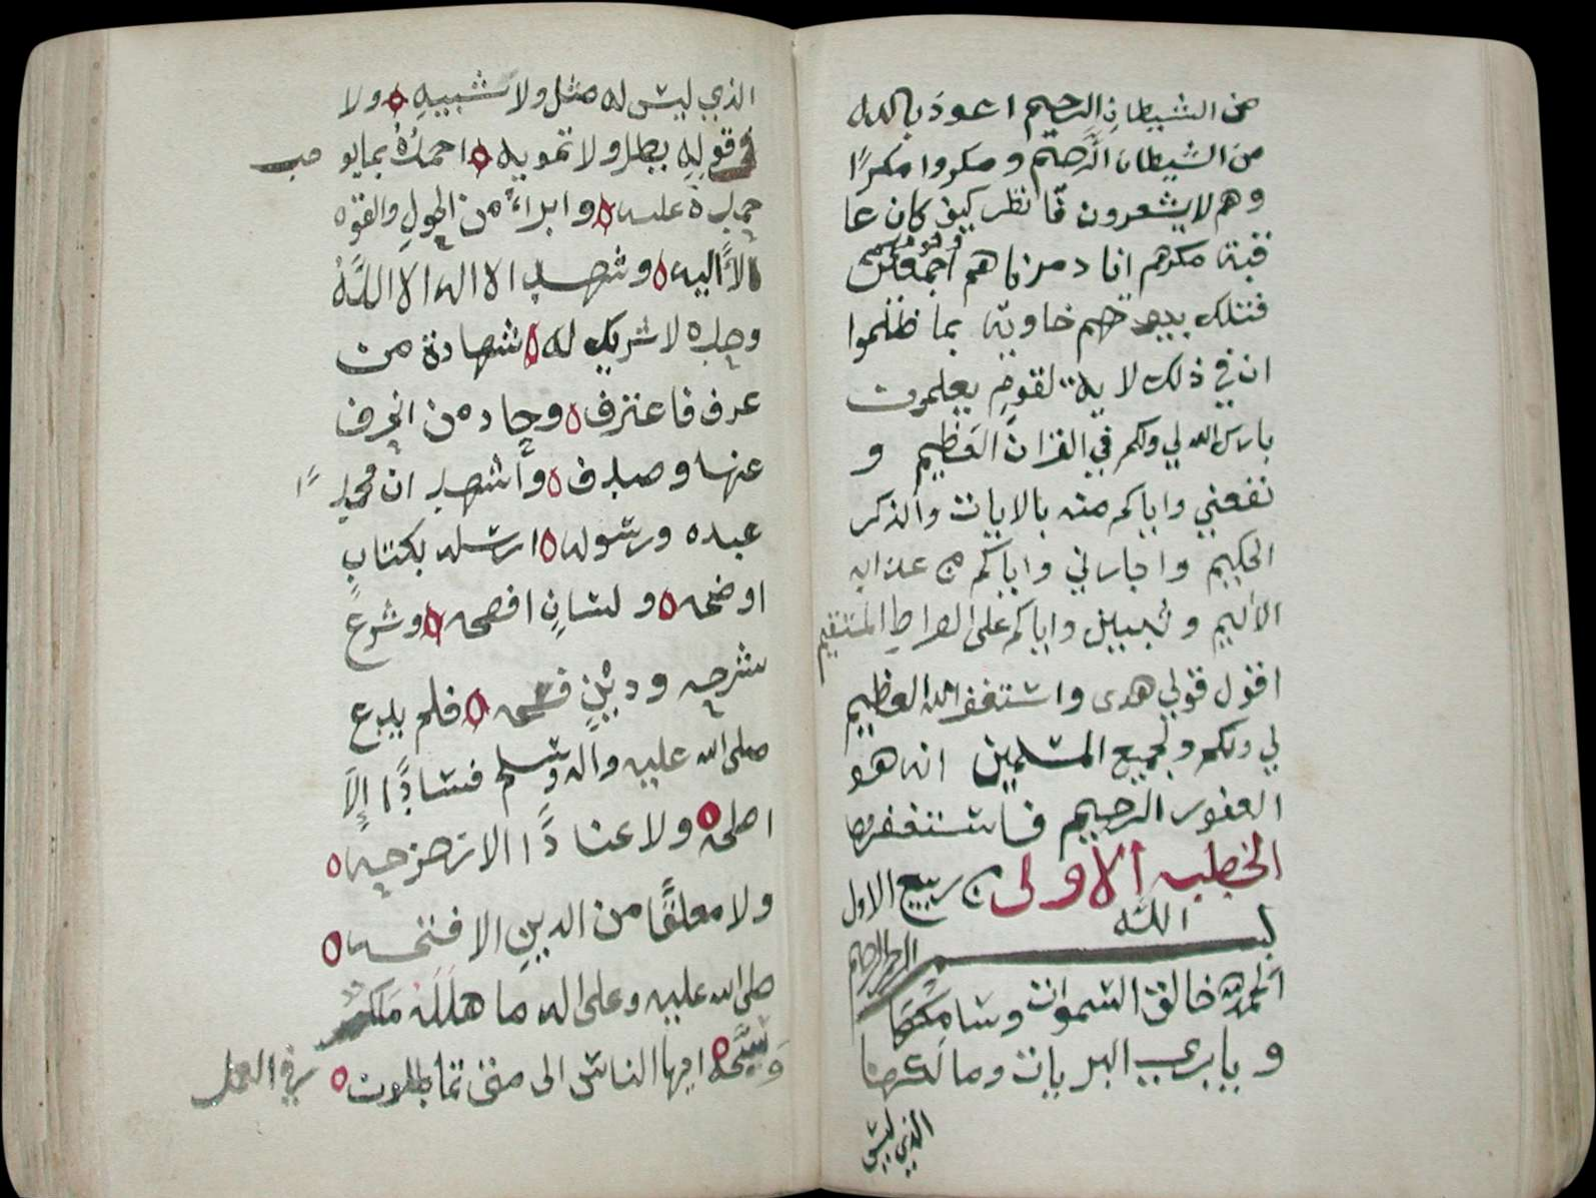 من الشيطان الرجيم اعوذ بالله
من الشيطان الرجيم ومكروا مكرًا
وهم لا يشعرون فانظر كيف كان عا
قبة مكرهم انا دمرناهم وقومهم اجمعين
فتلك بيوتهم خاوية بما ظلموا
ان في ذلك لاية لقومٍ يعلمون
بارك الله لي ولكم في القران العظيم و
نفعني واياكم منه بالايات والذكر
الحكيم واجارني واياكم من عذابه
الاليم وثبتني واياكم على الصراط المستقيم
اقول قولي هدى واستغفر الله العظيم
لي ولكم ولجميع المسلمين انه هو
الغفور الرحيم فاستغفروه
الخطبه الاولى من ربيع الاول
بسم الله الرحمن الرحيم
الحمد لله خالق السموات وسامكها
وباري البريات ومالكها
الذي ليس
الذي ليس له مثل ولا شبيهٍ ٥ ولا
في قوله بطل ولا تمويه ٥ احمدُهُ بما يو جب
حمده عليه ٥ وابراء من الحول والقوه
الاَّ اليه ٥ وشهد الا اله الا اللهُ
وحده لا شريك له ٥ شهادة من
عرف فاعترف ٥ وحاد من انحرف
عنها وصدف ٥ وأشهد ان محمدًا
عبده ورسوله ٥ ارسله بكتابٍ
اوضحه ٥ ولسانٍ افصحه ٥ وشرعٍ
شرحه ودينٍ فسحه ٥ فلم يدع
صلى الله عليه واله وسلم فسادًا إلاَّ
اصلحه ٥ ولا عنادًا الا زحزحه ٥
ولا مغلقًا من الدين الا فتحه ٥
صلى الله عليه وعلى اله ما هلله ملك
وسبَّحه ٥ ايها الناس الى متى تماطلون ٥ في العمل